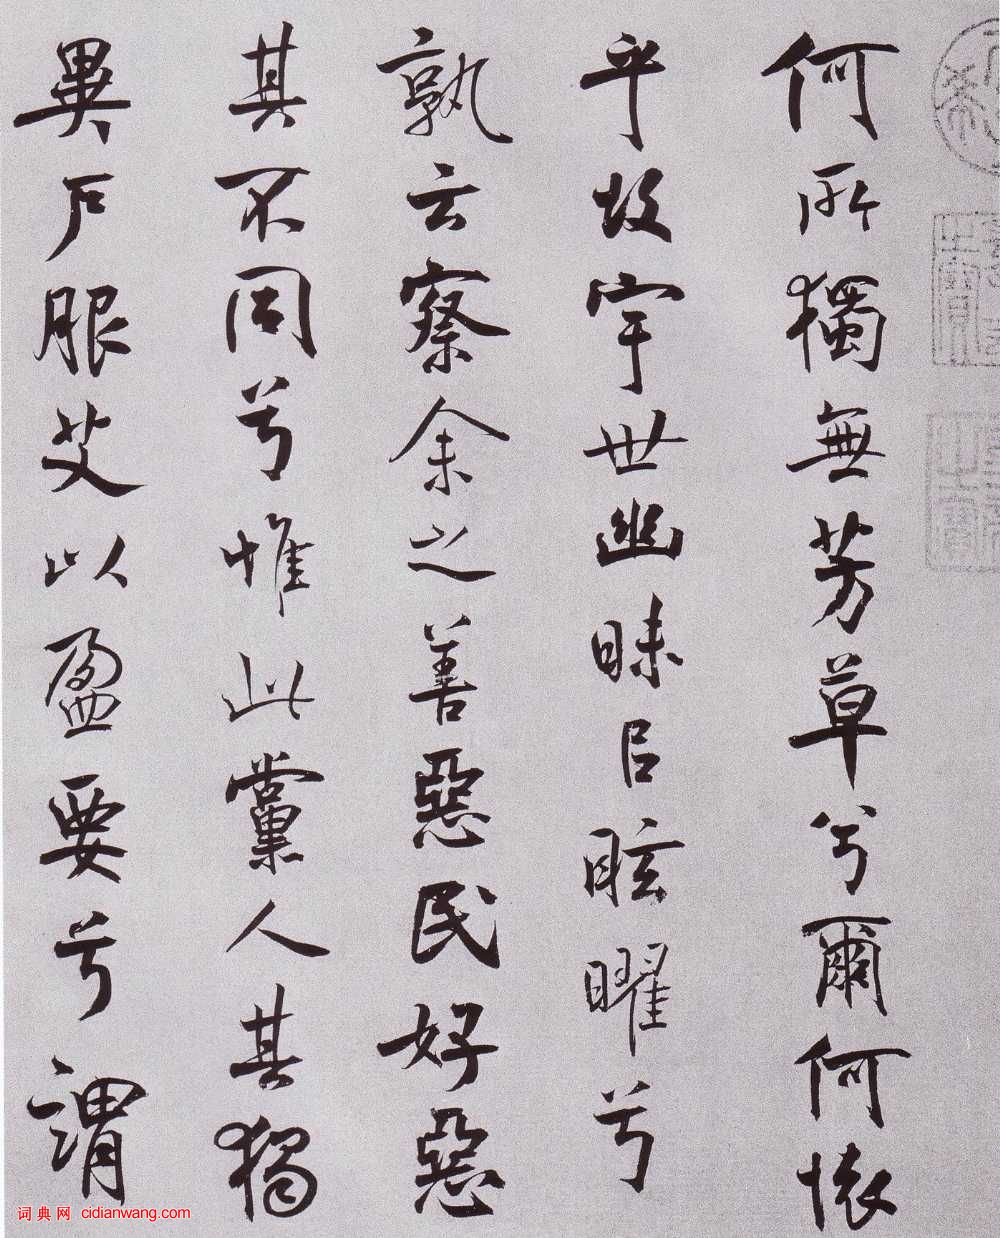 何所獨無芳草兮爾何懷
乎故宇世幽昧㠯眩曜兮
孰云察余之善惡民好惡
其不同兮惟此黨人其獨
異戶服艾以盈要兮謂
词典网 cidianwang.com